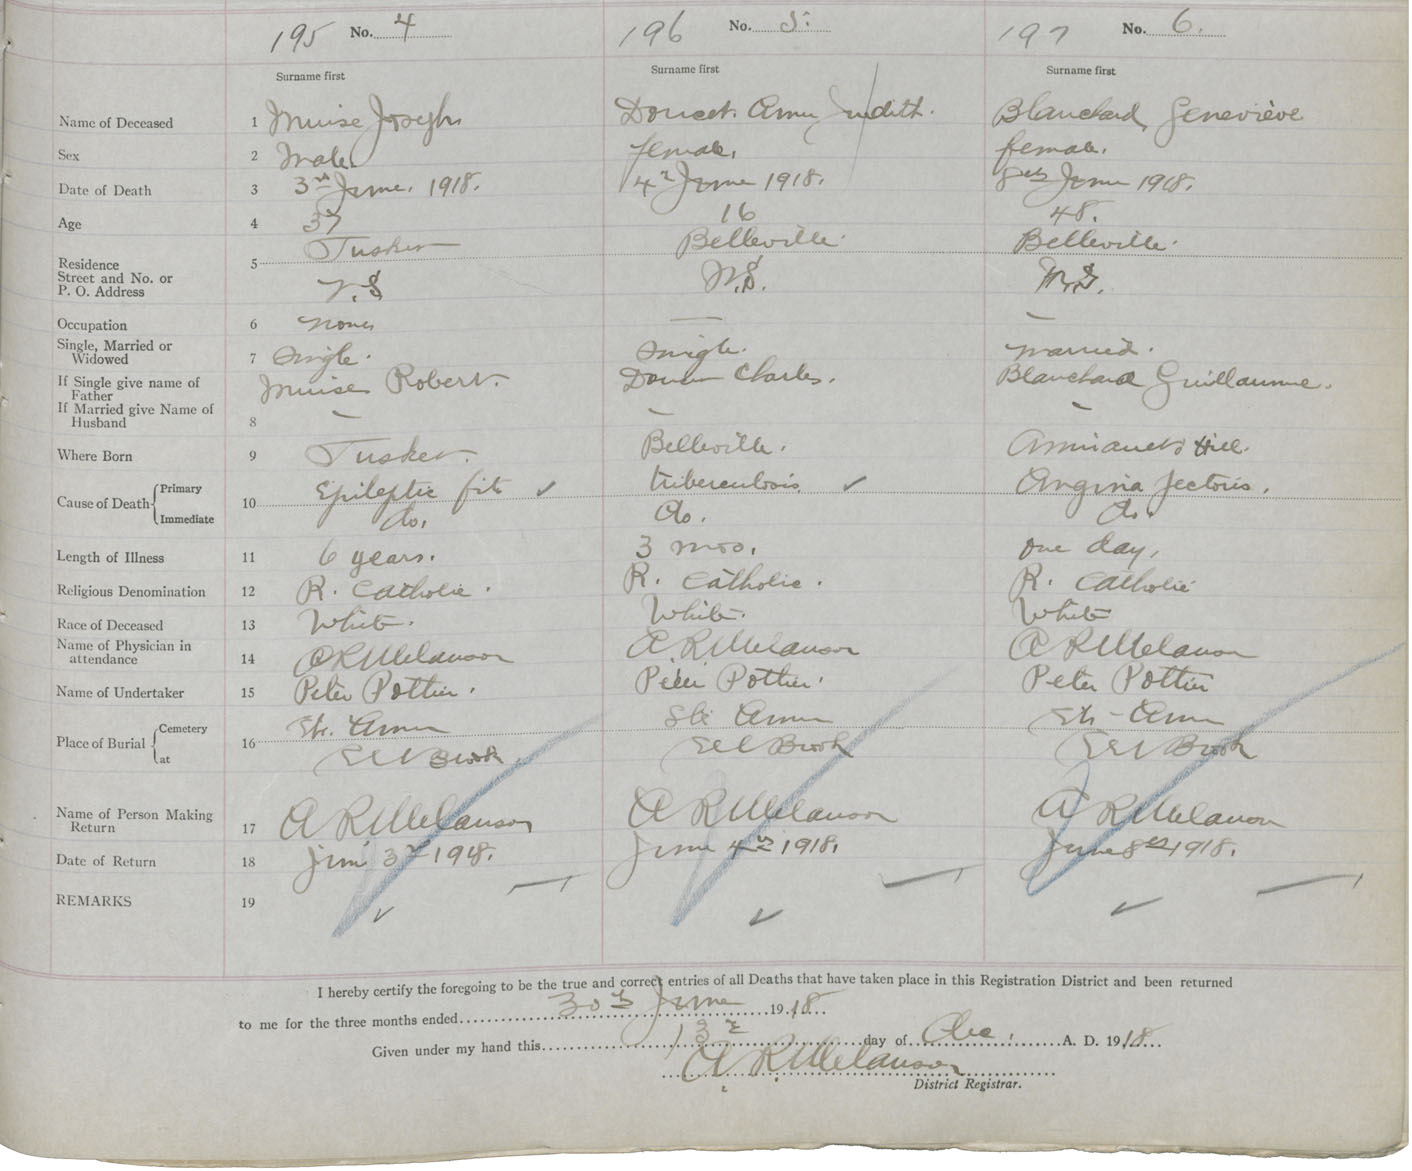 195 No. 4 196 No. 5. 197 No. 6.
Surname first Surname first Surname first
Name of Deceased 1 Muise Joseph Doucet. Ann Judith. Blanchard, Geneviève
Sex 2 Male. female. female.
Date of Death 3 3rd June. 1918. 4th June 1918. 8th June 1918.
Age 4 37 16 48.
Residence 5 Tusket Belleville. Belleville.
Street and No. or
P. O. Address N.S. N.S. N.S.
Occupation 6 none — —
Single, Married or
Widowed 7 Single. Single. married.
If Single give name of
Father Muise Robert. Charles. Blanchard Guillaume.
If Married give Name of
Husband 8 — — —
Where Born 9 Tusket. Belleville. Hill.
Cause of Death Primary 10 Epileptic fits ✓ tuberculosis ✓ Angina Pectoris.
Immediate do. do. do.
Length of Illness 11 6 years. 3 mos. one day.
Religious Denomination 12 R. Catholic. R. Catholic. R. Catholic
Race of Deceased 13 White. White. White
Name of Physician in
attendance 14 A R Melanson A R Melanson A R Melanson
Name of Undertaker 15 Peter Pottier. Peter Pottier. Peter Pottier
Place of Burial Cemetery 16 Ste. Anne Ste Anne Ste-Anne
at Eel Brook Eel Brook Eel Brook
Name of Person Making
Return 17 A R Melanson A R Melanson A R Melanson
Date of Return 18 June 3rd 1918. June 4th 1918. June 8th 1918.
REMARKS 19 ✓ ✓ ✓
I hereby certify the foregoing to be the true and correct entries of all Deaths that have taken place in this Registration District and been returned
to me for the three months ended 30th June 1918
Given under my hand this 13th day of Dec. A. D. 1918
A R Melanson
District Registrar.